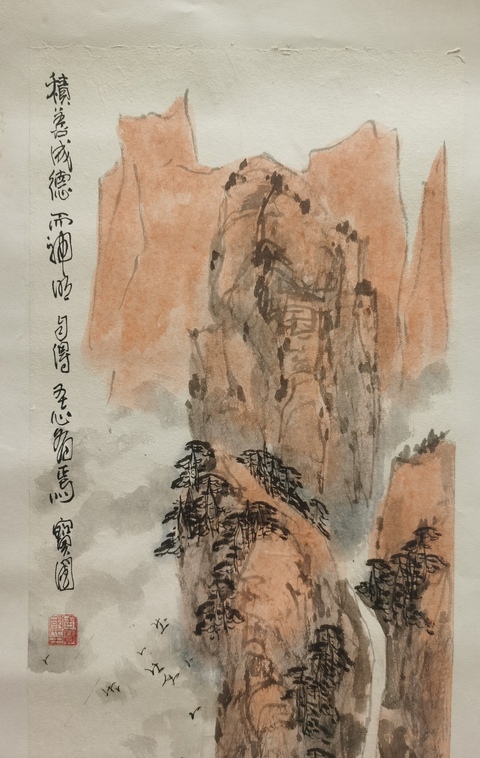 積善成德而神明自得圣心备焉 寶國